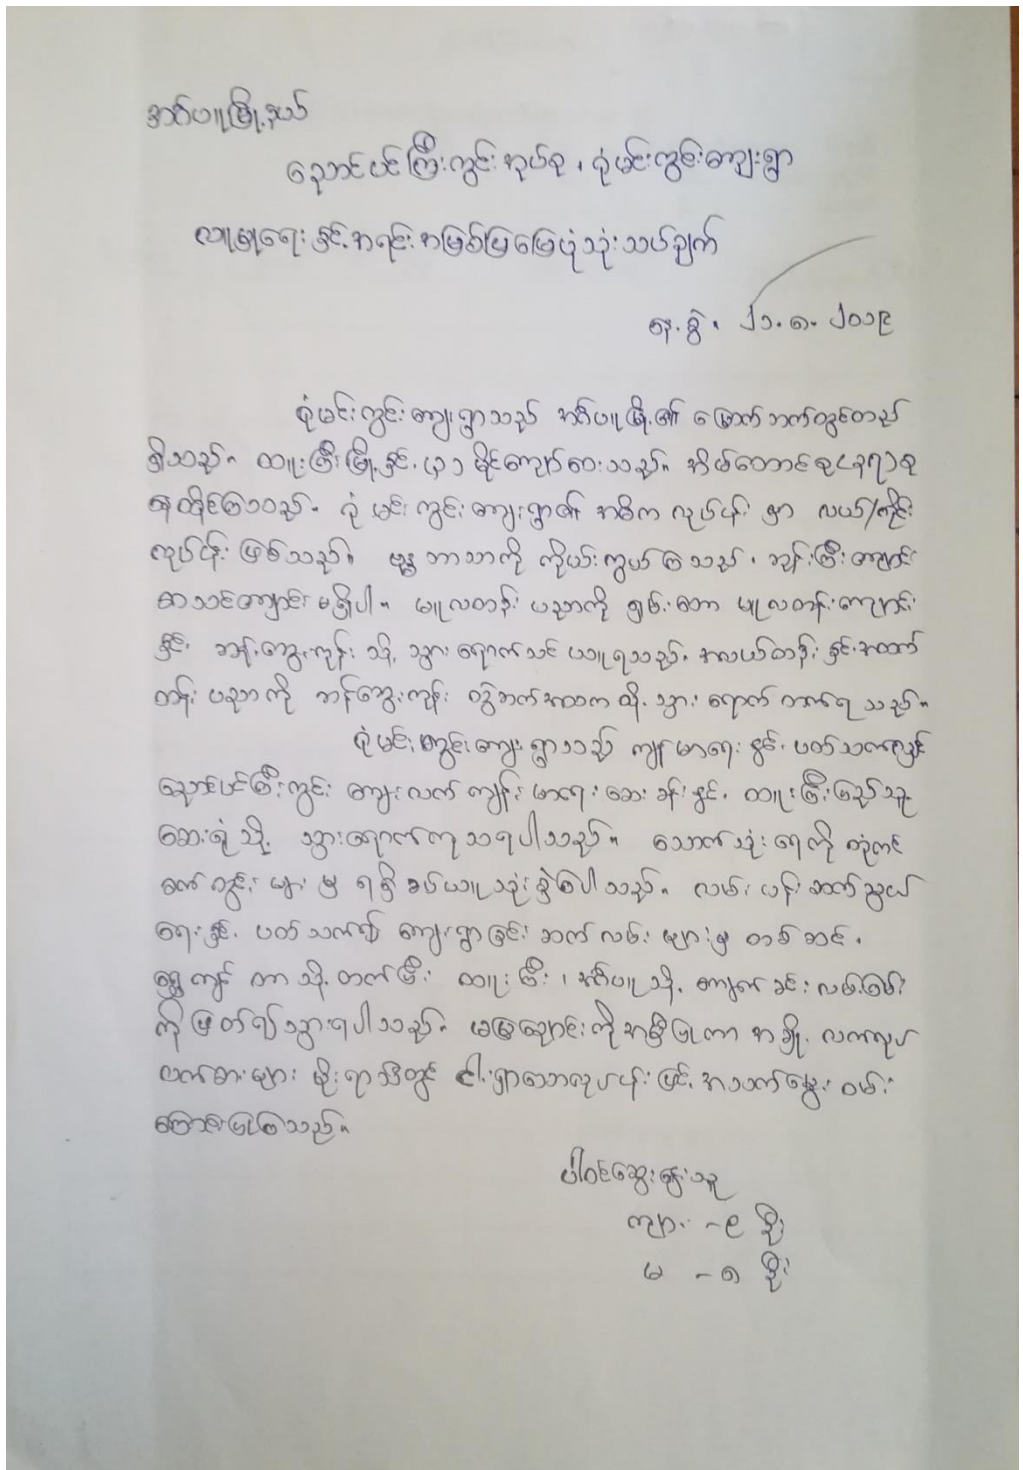 အင်္ဂပူမြို့နယ်
ညောင်ပင်ကြီးကွင်းအုပ်စု၊ ဂုံမင်းကွင်းကျေးရွာ
လူမှုရေးနှင့်အရင်းအမြစ်ပြမြေပုံသုံးသပ်ချက်
နေ့စွဲ၊ ၂၁.၈.၂၀၁၉
ဂုံမင်းကွင်းကျေးရွာသည် အင်္ဂပူမြို့၏ မြောက်ဘက်တွင်တည်
ရှိသည်။ ထူးကြီးမြို့နှင့် မိုင်ကျော်ဝေးသည်။ အိမ်ထောင်စု
နေထိုင်ကြသည်။ ဂုံမင်းကွင်းကျေးရွာ၏ အဓိကလုပ်ငန်းမှာ လယ်/ကိုင်း
လုပ်ငန်းဖြစ်သည်။ ဗုဒ္ဓဘာသာကို ကိုးကွယ်ကြသည်၊ ဘုန်းကြီးကျောင်း
စာသင်ကျောင်းမရှိပါ။ မူလတန်းပညာကို မူလတန်းကျောင်း
နှင့် သို့ သွားရောက်သင်ယူရသည်၊ အလယ်တန်းနှင့်အထက်
တန်းပညာကို သို့ သွားရောက်တက်ရသည်။
ဂုံမင်းကွင်းကျေးရွာသည် ကျန်းမာရေးနှင့်ပတ်သက်လျှင်
ညောင်ပင်ကြီးကွင်း ကျေးလက်ကျန်းမာရေးဆေးခန်းနှင့် ထူးကြီးပြည်သူ့
ဆေးရုံသို့ သွားရောက်ကုသရပါသည်။ သောက်သုံးရေကို တုံကင်
စက်တွင်းများမှ ရရှိခပ်ယူသုံးစွဲကြပါသည်။ လမ်းပန်းဆက်သွယ်
ရေးနှင့်ပတ်သက်၍ ကျေးရွာချင်းဆက်လမ်းများမှတစ်ဆင့်
ရွှေကျင် တာသို့တက်ပြီး ထူးကြီး၊ အင်္ဂပူသို့ ကျောက်ခင်းလမ်းကြမ်း
ကိုဖြတ်၍သွားရပါသည်။ မမြချောင်းကိုအမှီပြုကာ အချို့လက်လုပ်
လက်စားများ မိုးရာသီတွင် ငါးရှာသောလုပ်ငန်းဖြင့် အသက်မွေးဝမ်း
ကြောင်းပြုကြသည်။
ပါဝင်ဆွေးနွေးသူ
ကျား - ၉ ဦး
မ - ၈ ဦး